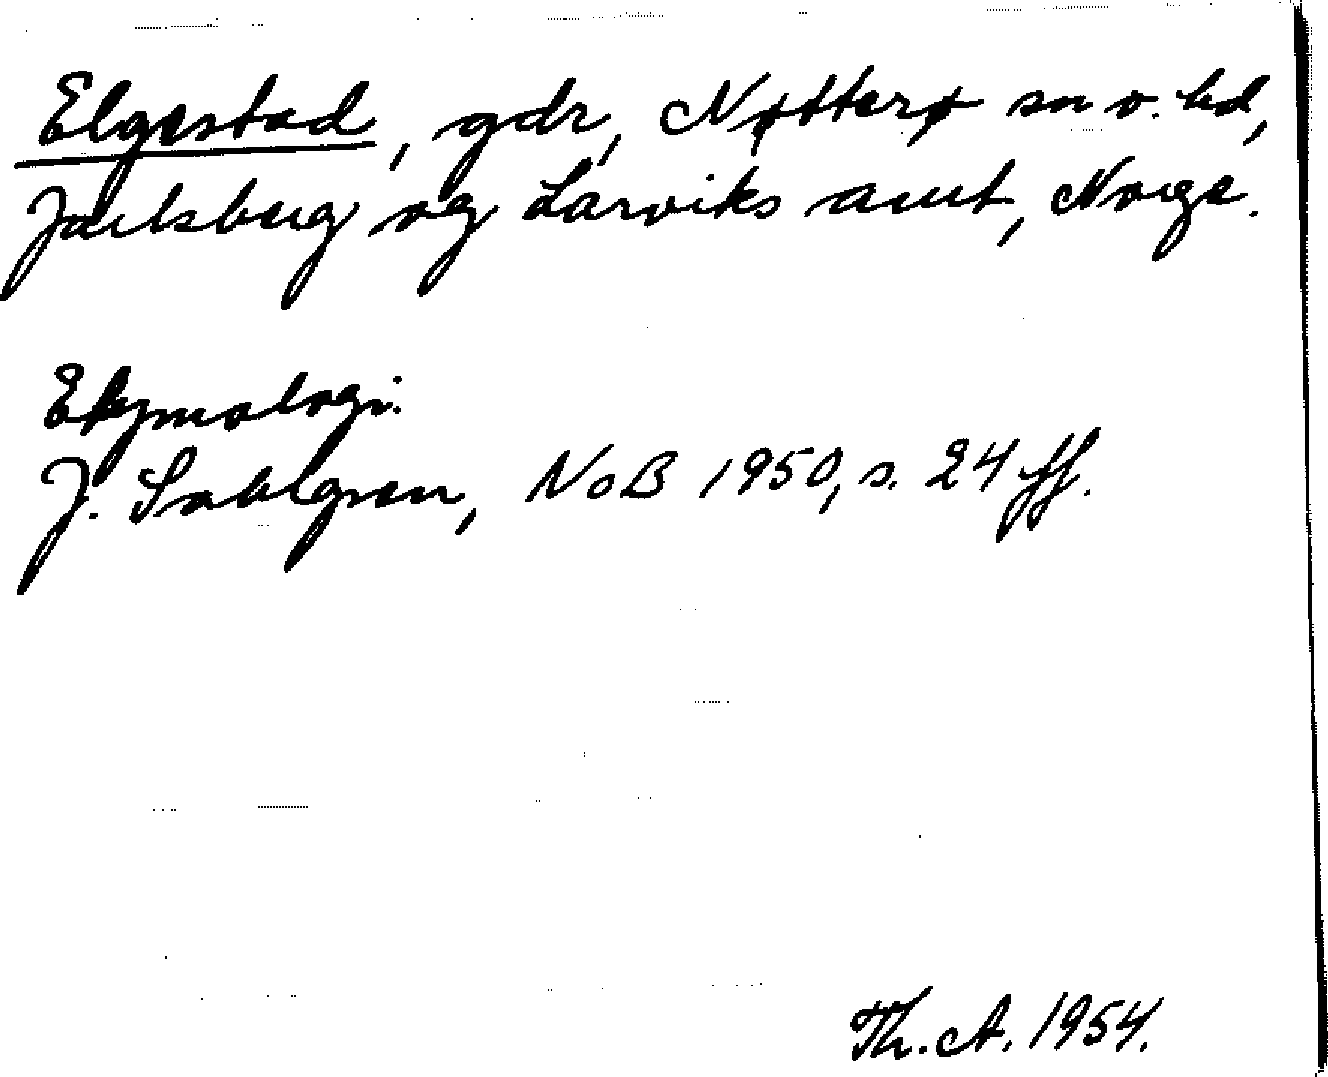 Elgestad, gdr, Nøtterø sn o. hd,
Jarlsberg og Larviks amt, Norge.
Etymologi.
J. Sahlgren, NoB 1950, s. 24 ff.
Th. A. 1954.